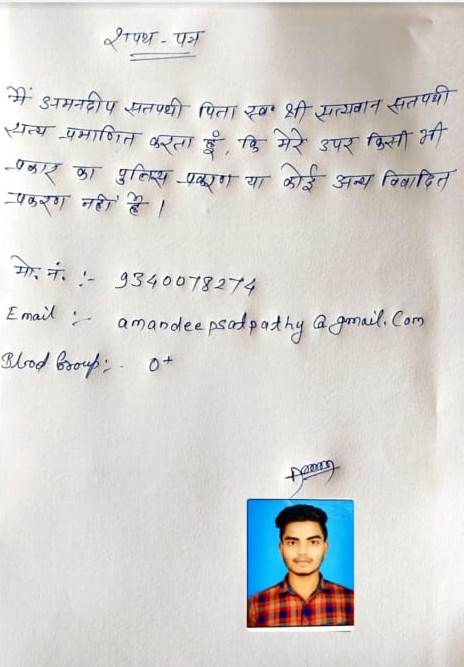 शपथ - पत्र
मैं अमनदीप सतपथी पिता स्व॰ श्री सत्यवान सतपथी
सत्य प्रमाणित करता हूँ, कि मेरे उपर किसी भी
प्रकार का पुलिस प्रकरण या कोई अन्य विवादित
प्रकरण नहीं है।
मो. नं. :- 9340078274
Email :- amandeepsatpathy@gmail.Com
Blood Group:- O+